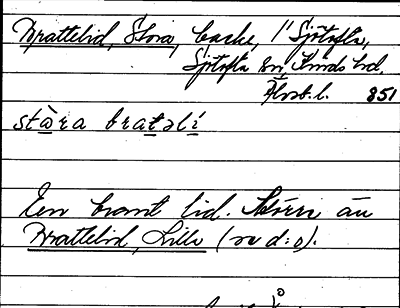 Brattelid, Stora, backe, 1" Sjötofta,
Sjötofta sn, Kinds hd,
Älvsb. l. 851
stàra bratəlí
En brant lid. Större än
Brattelid, Lilla (se d:o).